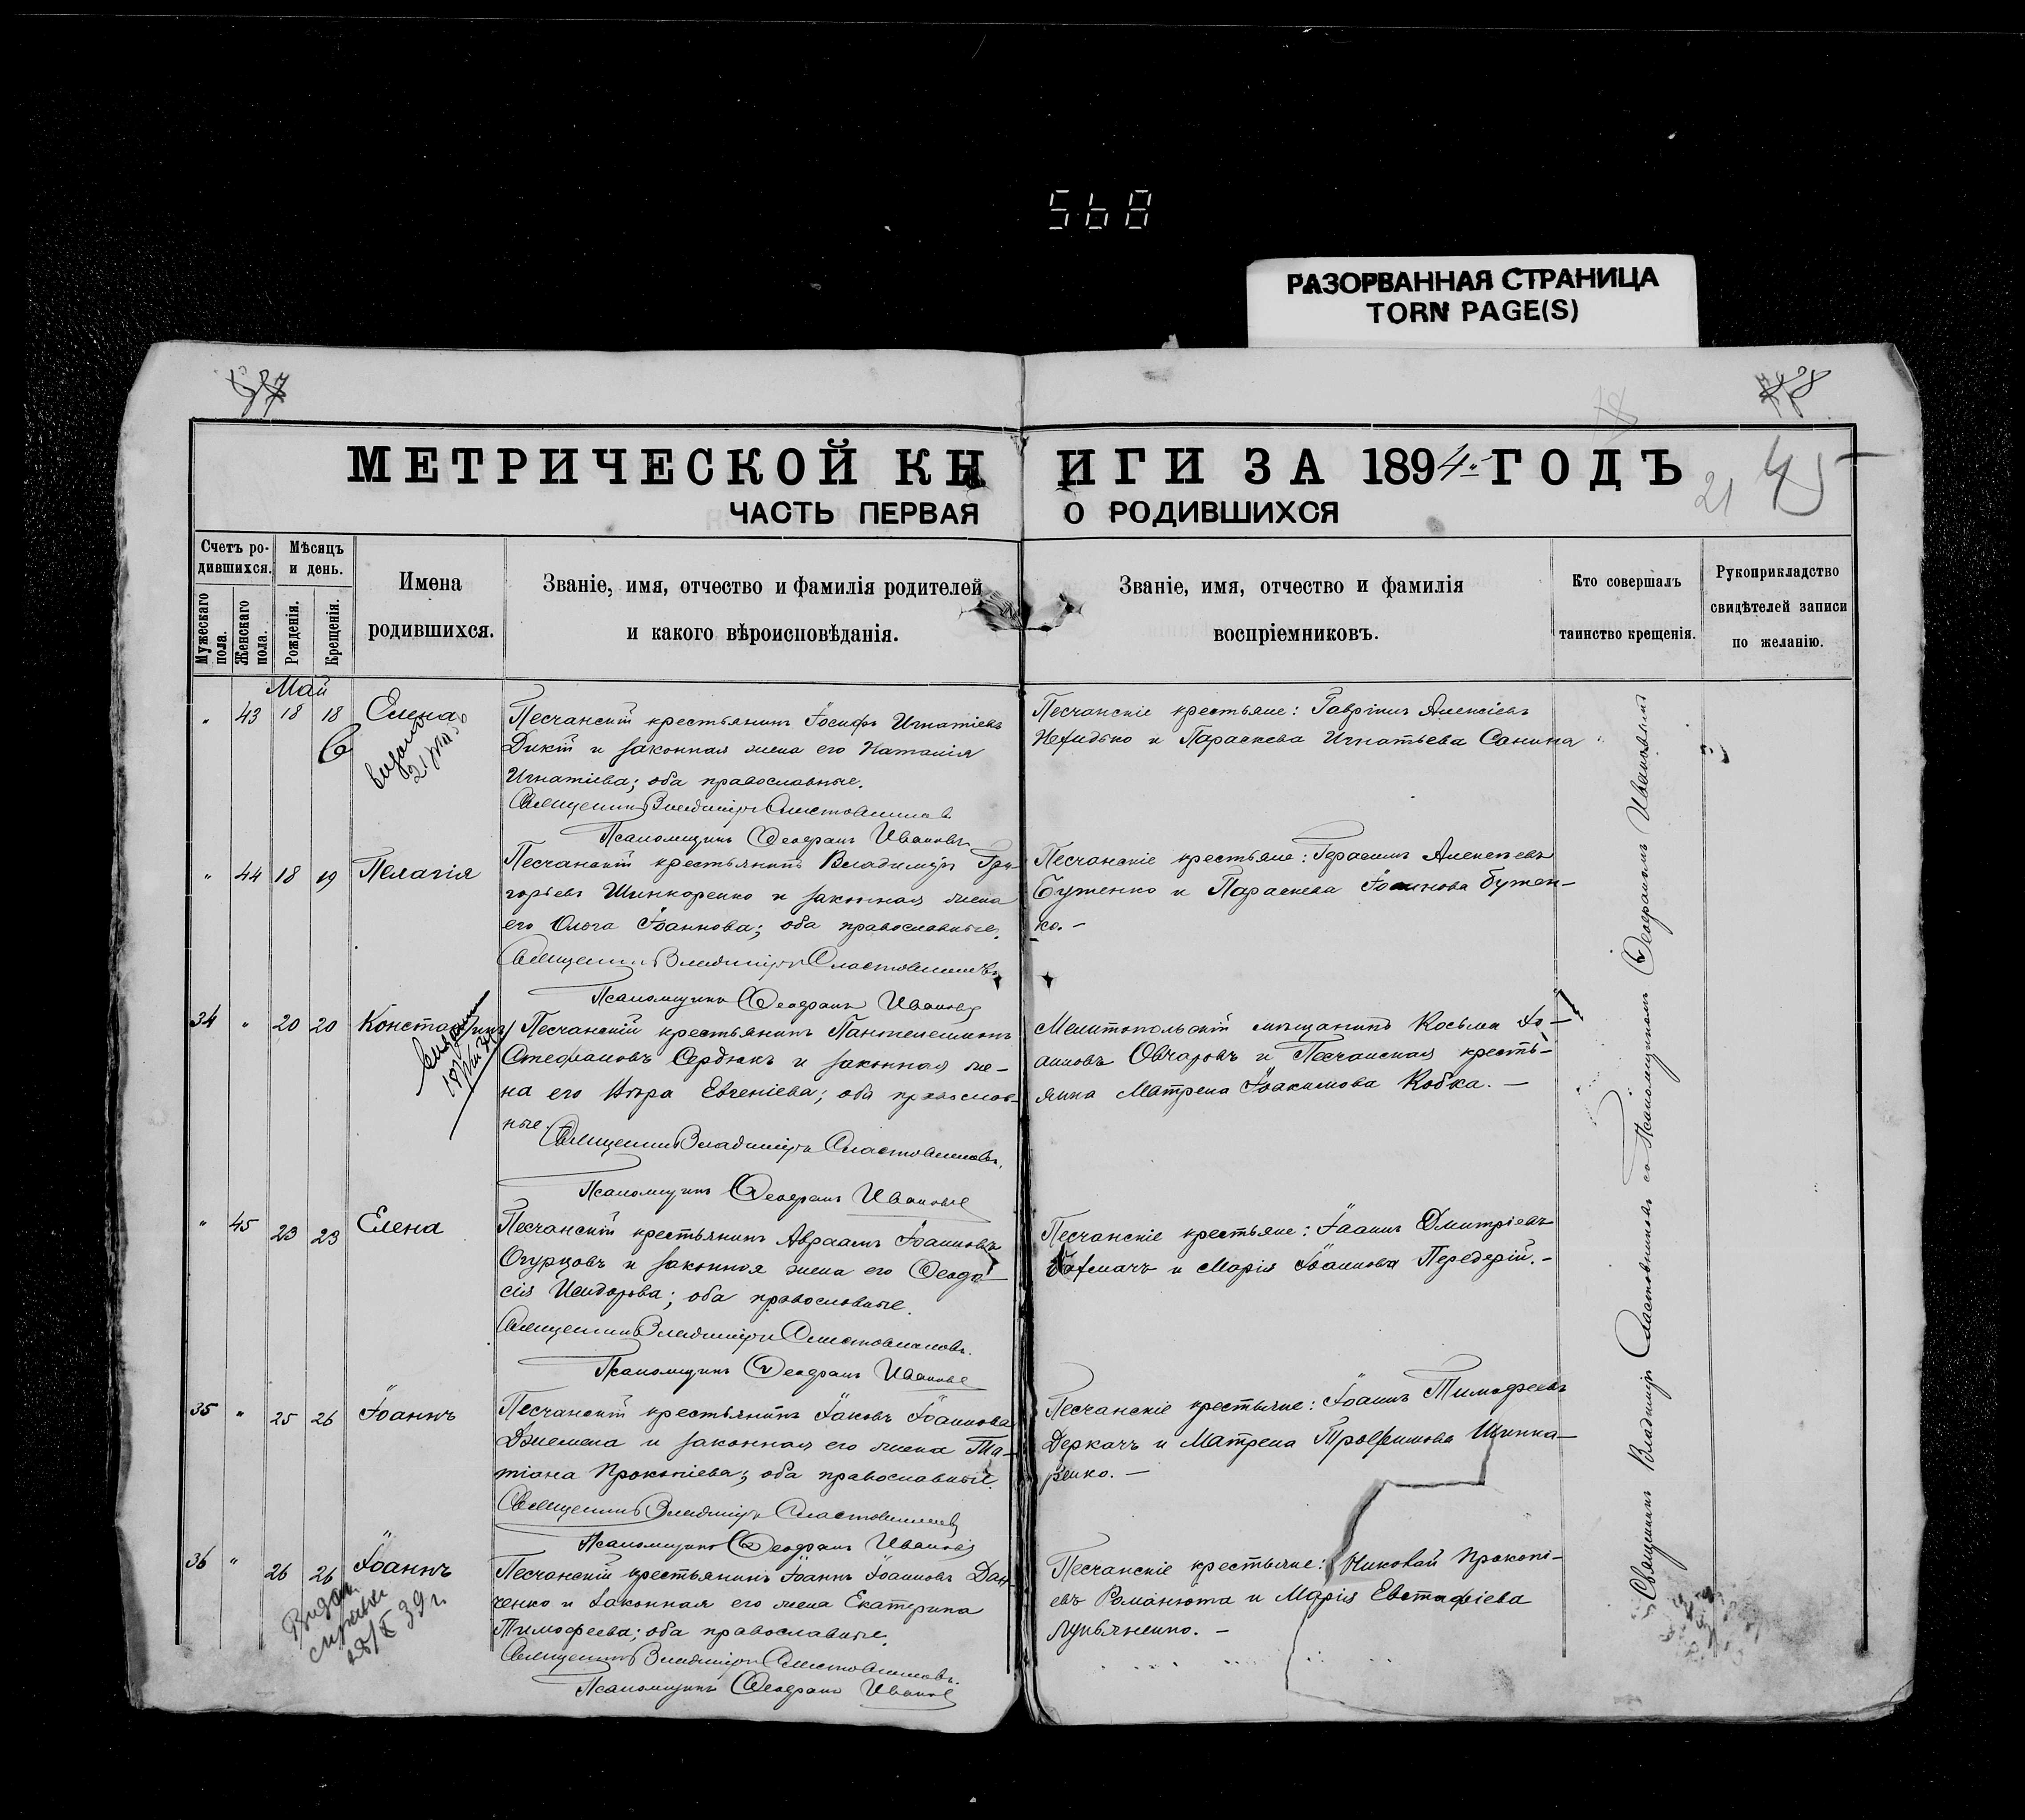 568
РАЗОРВАННАЯ СТРАНИЦА
TORN PAGE(S)
МЕТРИЧЕСКОЙ КНИГИ ЗА 1894 ГОДЪ
21 45
ЧАСТЬ ПЕРВАЯ О РОДИВШИХСЯ
Счетъ ро-
дившихся.
Мужескаго пола.
Женскаго пола.
Мѣсяцъ
и день.
Рожденія.
Крещенія.
Имена
родившихся.
Званіе, имя, отчество и фамилія родителей
и какого вѣроисповѣданія.
Званіе, имя, отчество и фамилія
воспріемниковъ.
Кто совершалъ
таинство крещенія.
Рукоприкладство
свидѣтелей записи
по желанію.
Май
" 43 18 18 Елена
Песчанскій крестьянинъ Іосифъ Игнатіевъ
Дикій и законная жена его Наталія
Игнатіева; оба православные.
Священникъ Владиміръ Сластовниковъ
Псаломщикъ Ѳеофанъ Ивановъ
Песчанскіе крестьяне: Гавріилъ Алексіевъ
Нежидько и Параскева Игнатьева Санина
" 44 18 19 Пелагія
Песчанскій крестьянинъ Владиміръ Гри-
горьевъ Шинкоренко и законная жена
его Ольга Іоаннова; оба православные.
Священникъ Владиміръ Сластовниковъ
Псаломщикъ Ѳеофанъ Ивановъ
Песчанскіе крестьяне: Герасимъ Алексѣевъ
Бутенко и Параскева Іоаннова Бутен-
ко. -
34 " 20 20 Константинъ
Песчанскій крестьянинъ Пантелеимонъ
Стефановъ Сердюкъ и законная же-
на его Вѣра Евгеніева; оба православ-
ные.
Священникъ Владиміръ Сластовниковъ.
Псаломщикъ Ѳеофанъ Ивановъ
Мелитопольскій мѣщанинъ Косьма Іо-
анновъ Овчаровъ и Песчанская кресть-
янка Матрена Іоакимова Кобка. -
" 45 23 23 Елена
Песчанскій крестьянинъ Авраамъ Іоанновъ
Огурцовъ и законная жена его Ѳеодо-
сія Исидорова; оба православные.
Священникъ Владиміръ Сластовниковъ.
Псаломщикъ Ѳеофанъ Ивановъ
Песчанскіе крестьяне: Іоаннъ Дмитріевъ
и Марія Іоаннова Передерій. -
35 " 25 26 Іоаннъ
Песчанскій крестьянинъ Іаковъ Іоаннова
Джемела и законная его жена Та-
тіана Прокопіева; оба православные.
Священникъ Владиміръ Сластовниковъ
Псаломщикъ Ѳеофанъ Ивановъ
Песчанскіе крестьяне: Іоаннъ Тимофеевъ
Деркачъ и Матрена Трофимова Шинка-
ренко. -
36 " 26 26 Іоаннъ
Песчанскій крестьянинъ Іоаннъ Іоанновъ Дан-
ченко и законная его жена Екатерина
Тимофеева; оба православные.
Священникъ Владиміръ Сластовниковъ.
Псаломщикъ Ѳеофанъ Ивановъ
Песчанскіе крестьяне: Николай Прокопі-
евъ Романюта и Марія Евстафіева
Лукьяненко. -
Священникъ Владиміръ Сластовниковъ со Псаломщикомъ Ѳеофаномъ Ивановымъ